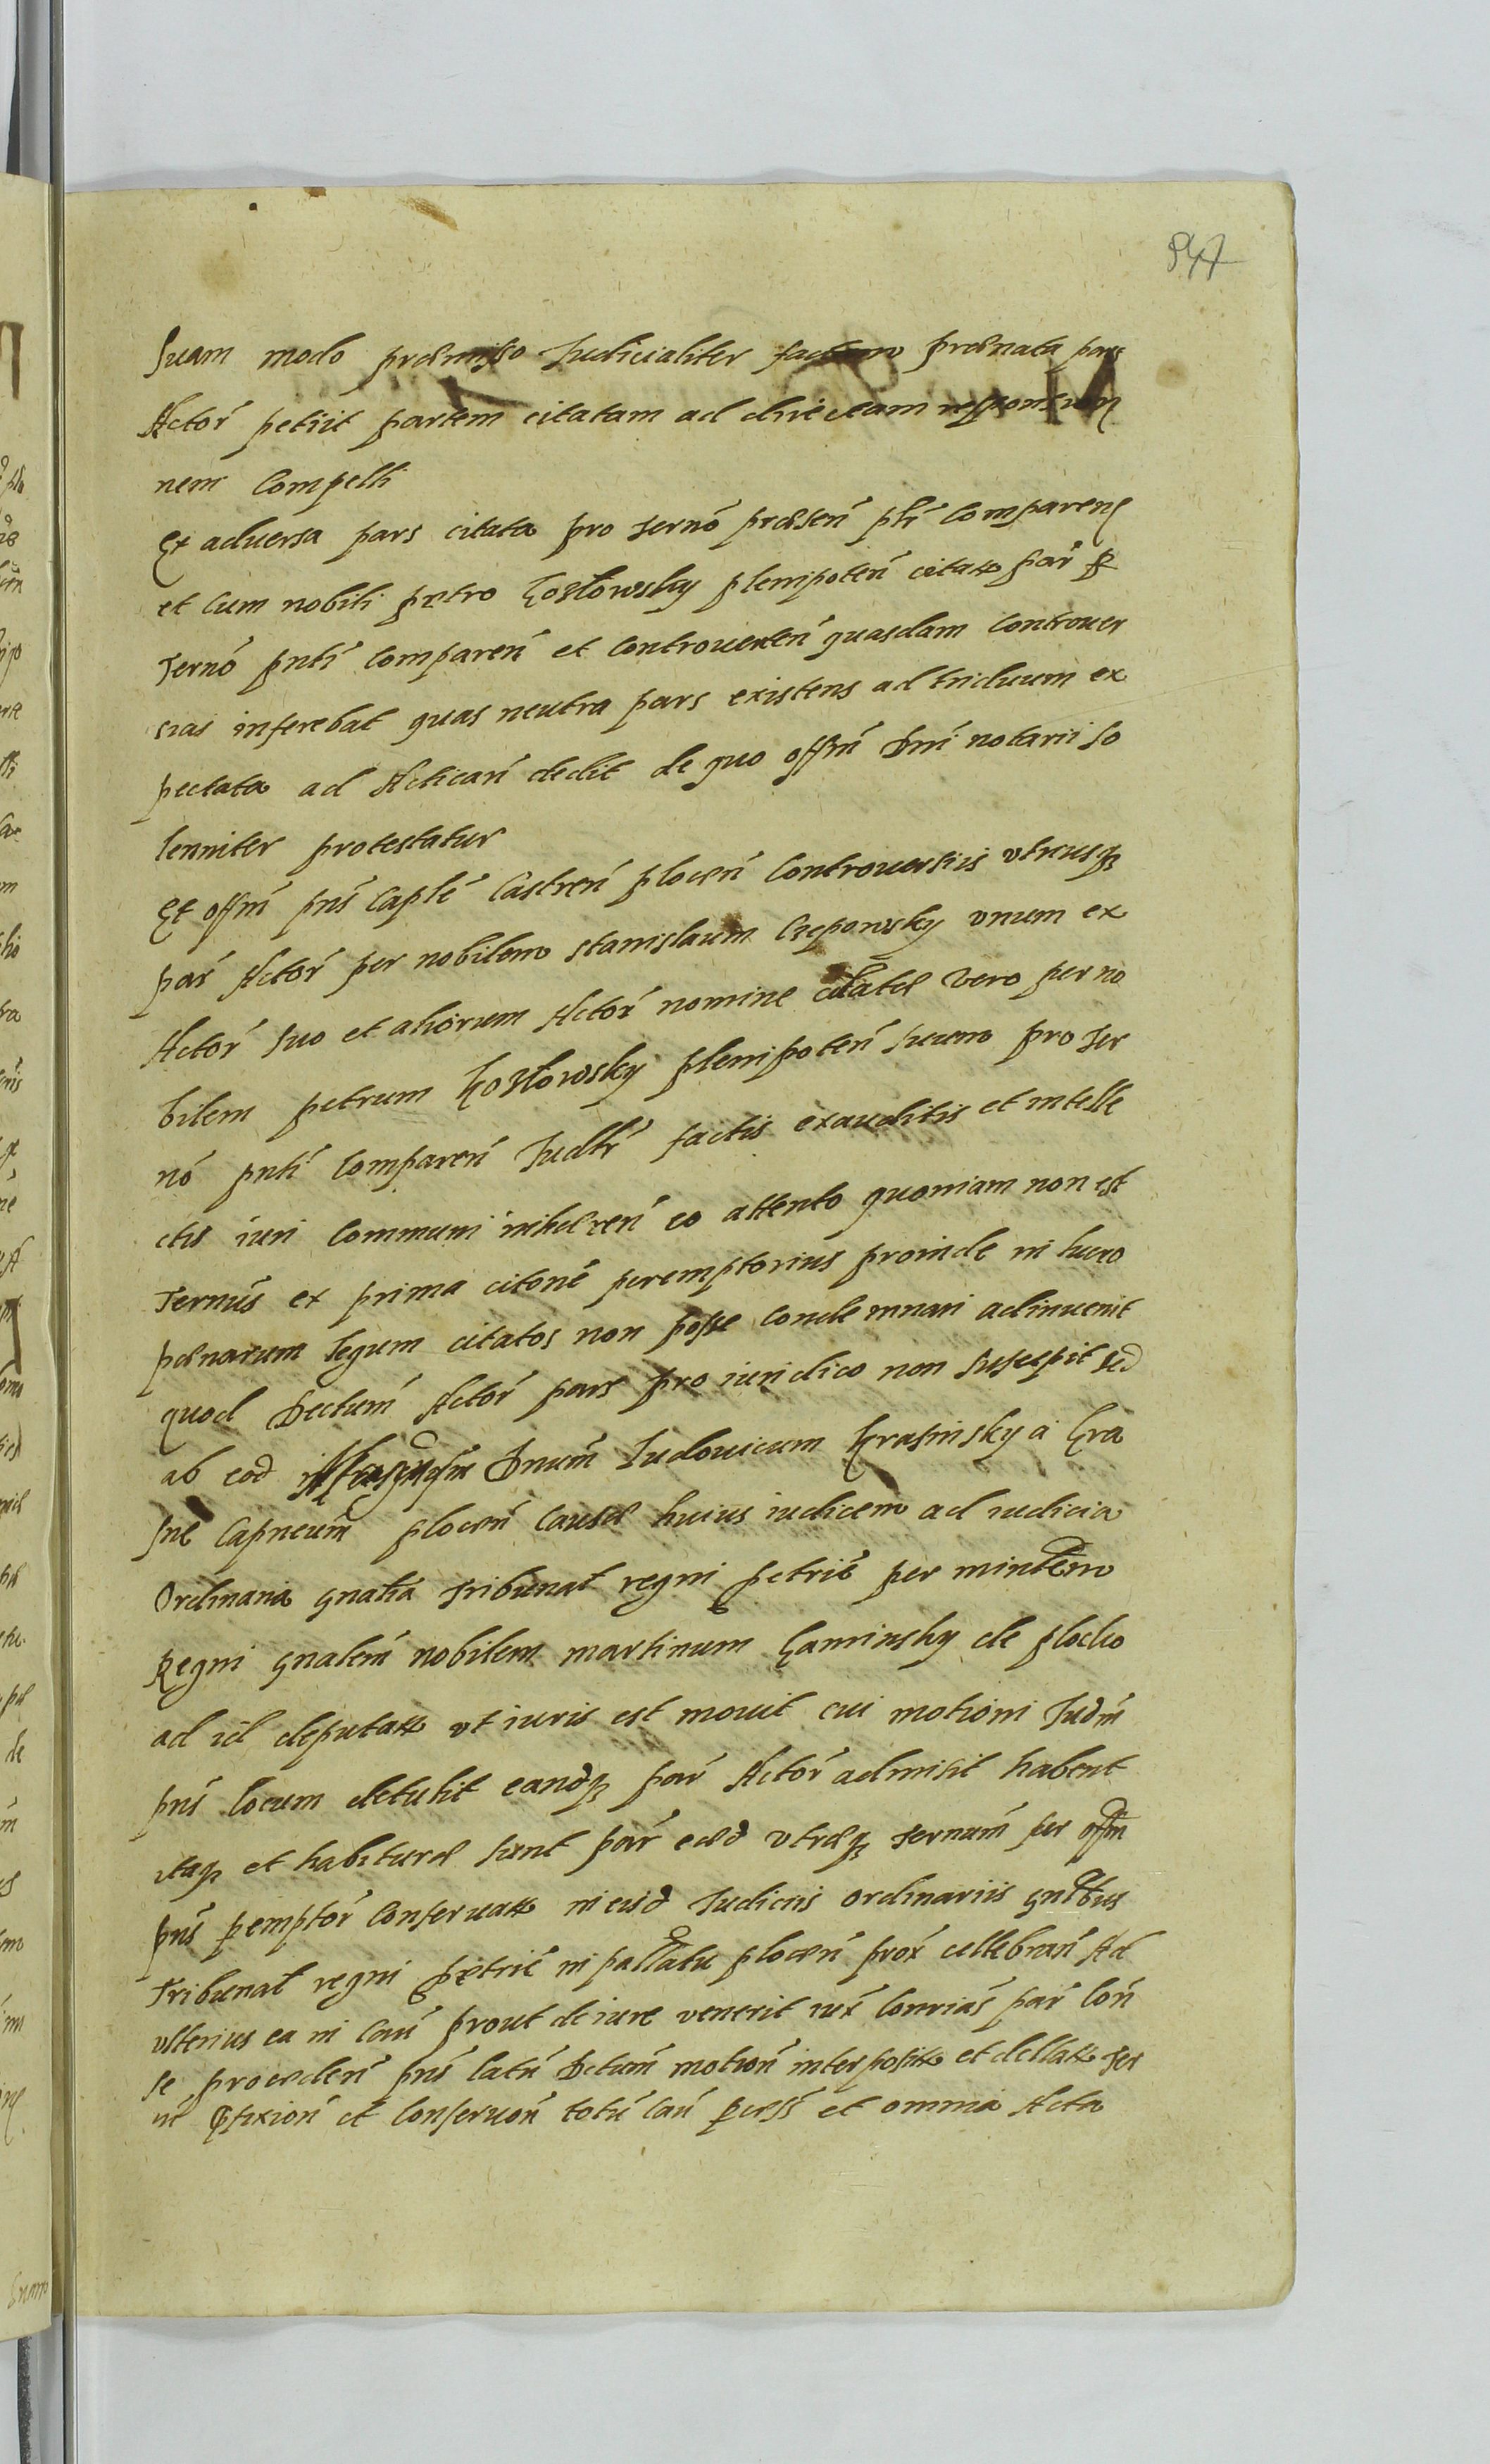 847
suam modo præmisso Judicialiter factam prænata pars
Actoŕ petiit partem citatam ad directam responsio
nem Compelli
Ex adversa pars citata pro Termó præseń pltr Comparens
et cum nobili petro Kozlowsky plenipoteń citatæ par
Termó pnti Compareń et Controverteń quasdam Controuer
sias inferebat quas neutra pars existens ad triduum ex
pectata ad Acticań dedit de quo offm Dni notarii so
lenniter protestatur
Et offm pns Captle Castreń plocen Controuersiis vtriusq
par Actoŕ per nobilem Stanislaum Czepowsky vnum ex
Actoŕ suo et aliorum Actoŕ nomine citatæ vero per no
bilem petrum Kozlowsky plenipoteń suum pro Ter
nó pnti Compareń Judltr factis exauditis et intelle
ctis iuri Communi inhæreń eo attento quoniam non est
Termus ex prima citone peremptorius proinde in lucro
pænarum legum citatos non posse Condemnari adinuenit
quod Dectum Actoŕ pars pro iuridico non suscepit sed
ab eod Dnum Ludouicum Krasinsky a Kra
sne Capneum plocen Causæ huius iudicem ad iudicia
Ordinaria gnalia Tribunal regni petrie per mintem
Regni gnalem nobilem martinum Kaminsky de plocko
ad id deputatt vt iuris est mouit cui motioni Judm
pns locum detulit eandq par Actoŕ admisit habent
itaq et habituræ sunt par eæd vtræq Termum per offm
pns peremptoŕ Conseruatt in eisd Judiciis ordinariis gnlbus
Tribunal regni petrie in pallatu plocen prox cellebrań Ad
vlterius ea in Cau prout de iure venerit iux Conrias par Coń
se procedeń pns latu Dctum motioń interposit et dellatt Ter
ni pfixioń et Conseruoń totu Cau pcess et omnia Acta